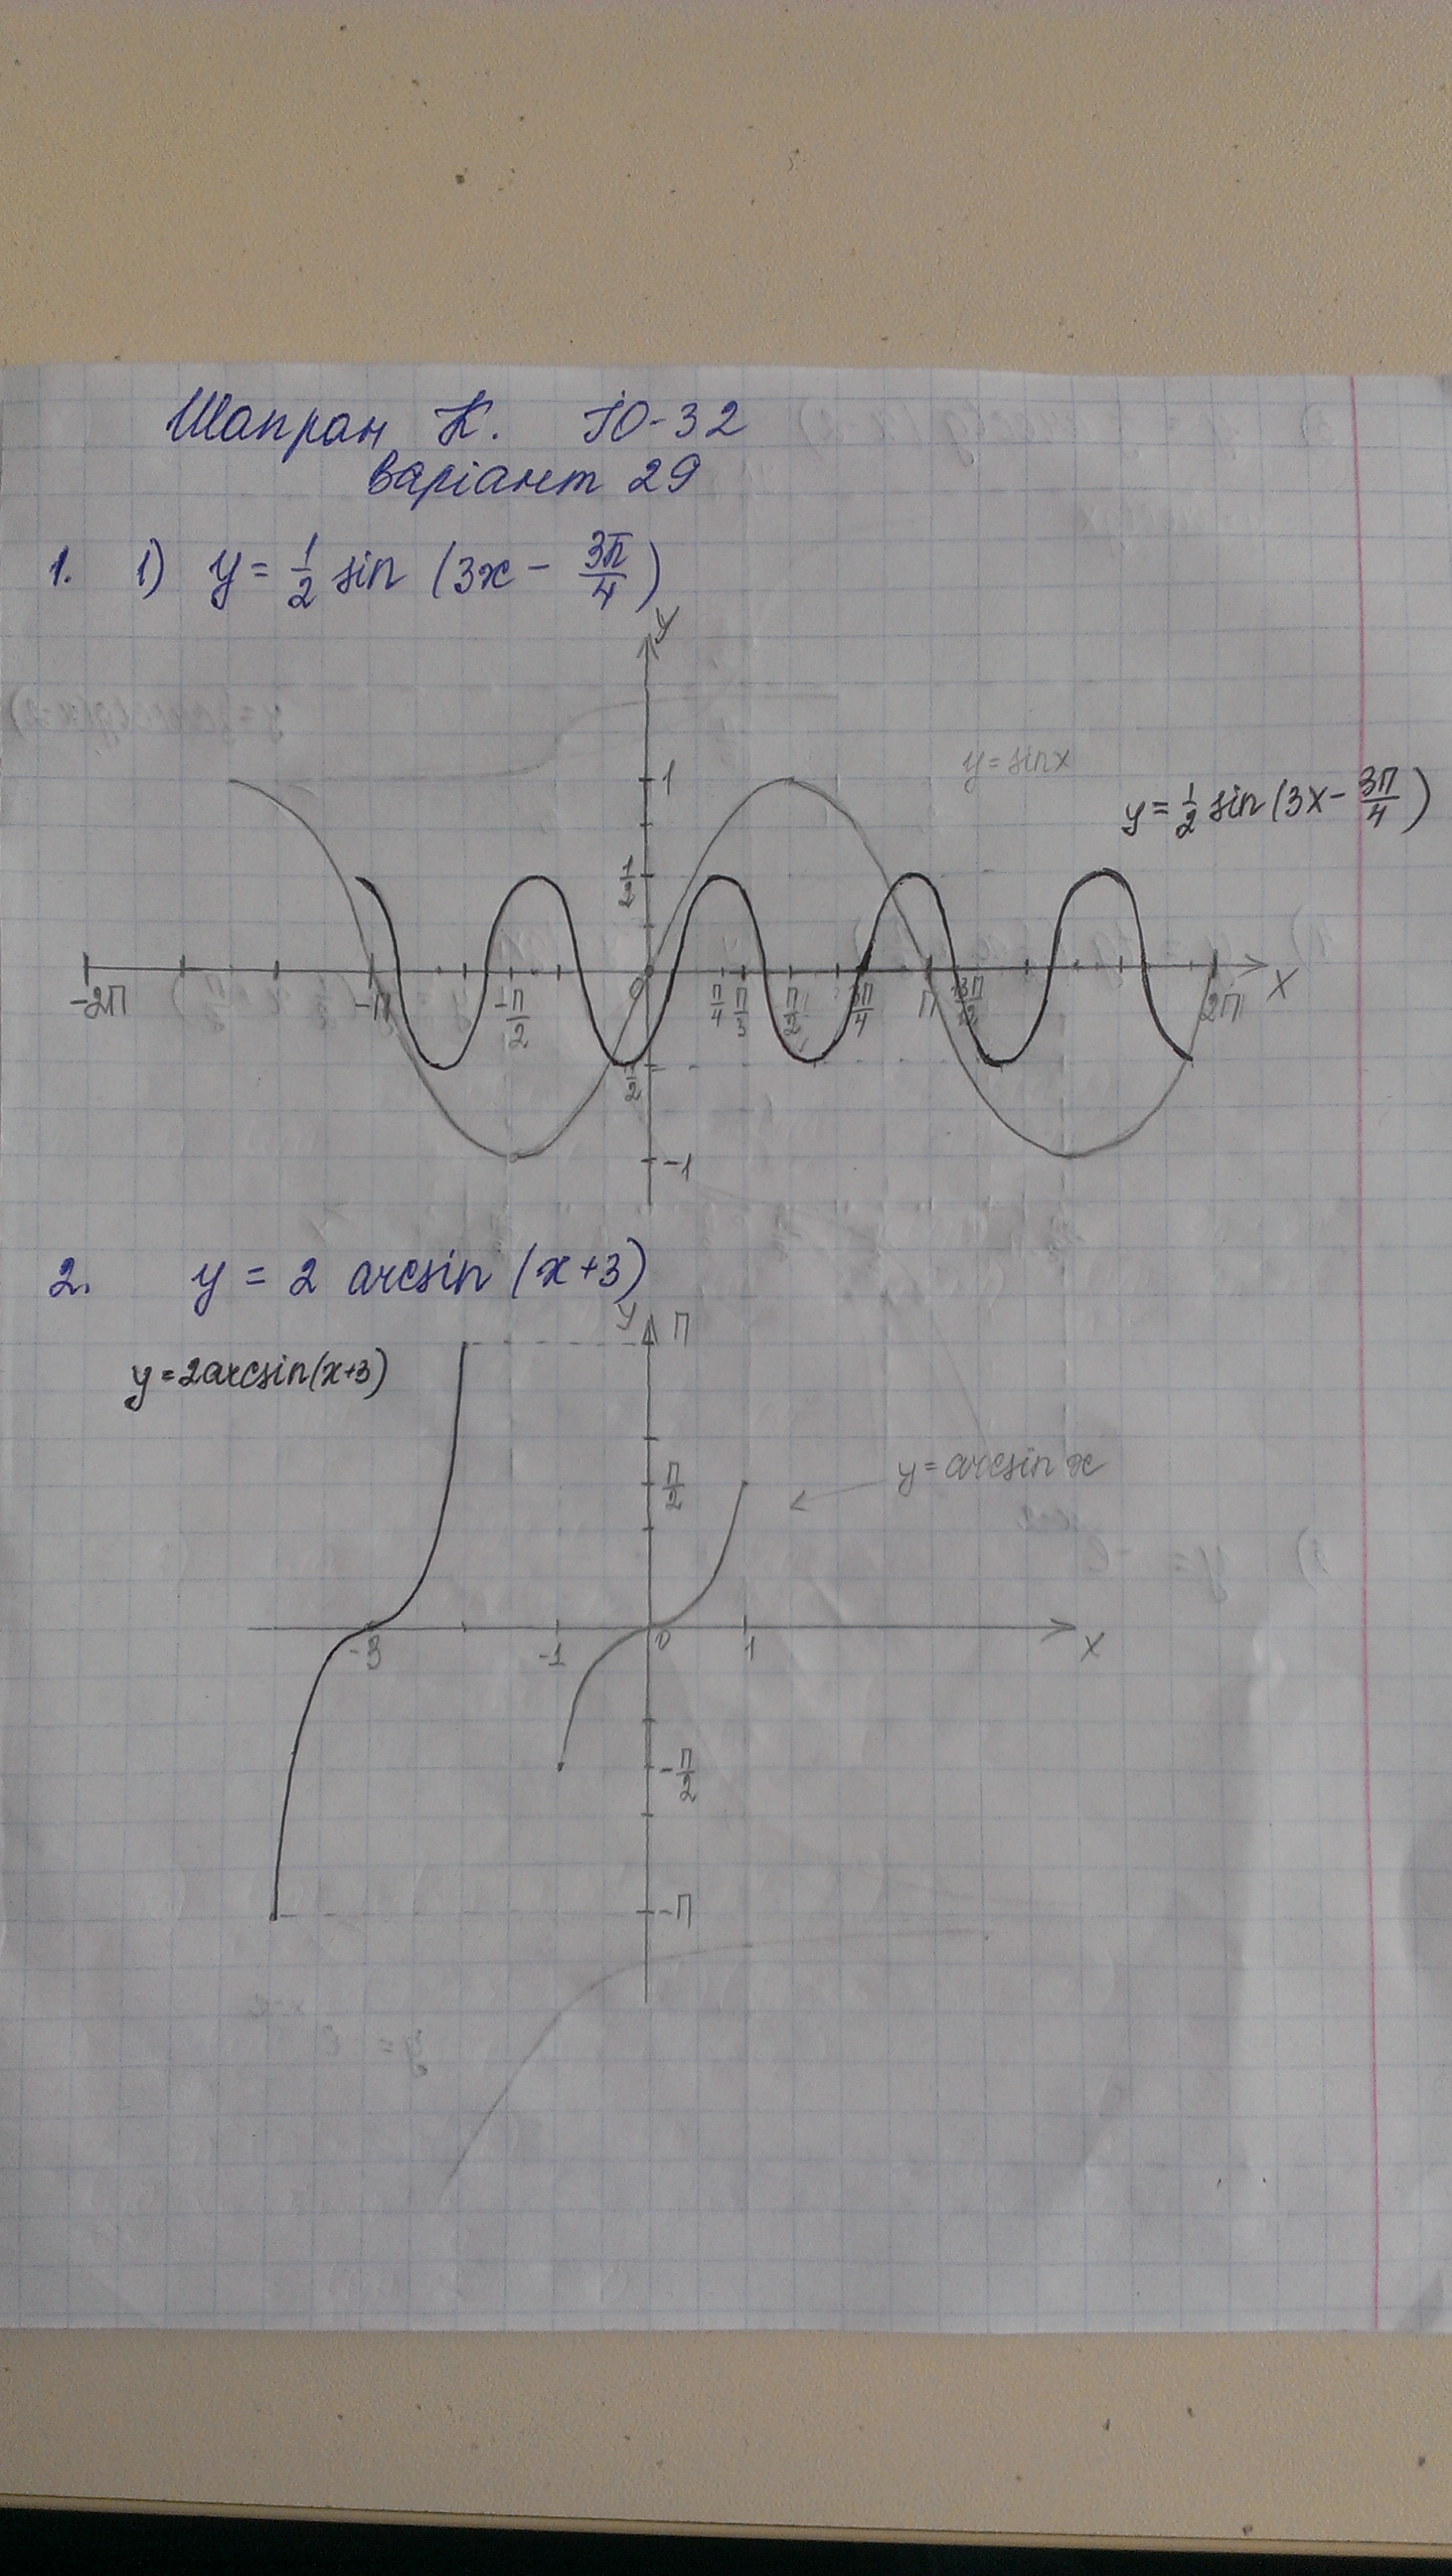 Шапран К. ІО-32
варіант 29
1. 1) y = 1/2 sin (3x - 3π/4)
y
1
y = sinx
y = 1/2 sin (3x - 3π/4)
1/2
-2π -π -π/2 0 π/4 π/3 π/2 3π/4 π 13π/12 2π x
-1/2
-1
2. y = 2 arcsin (x+3)
y π
y = 2arcsin(x+3)
π/2 y = arcsin x
-3 -1 0 1 x
-π/2
-π